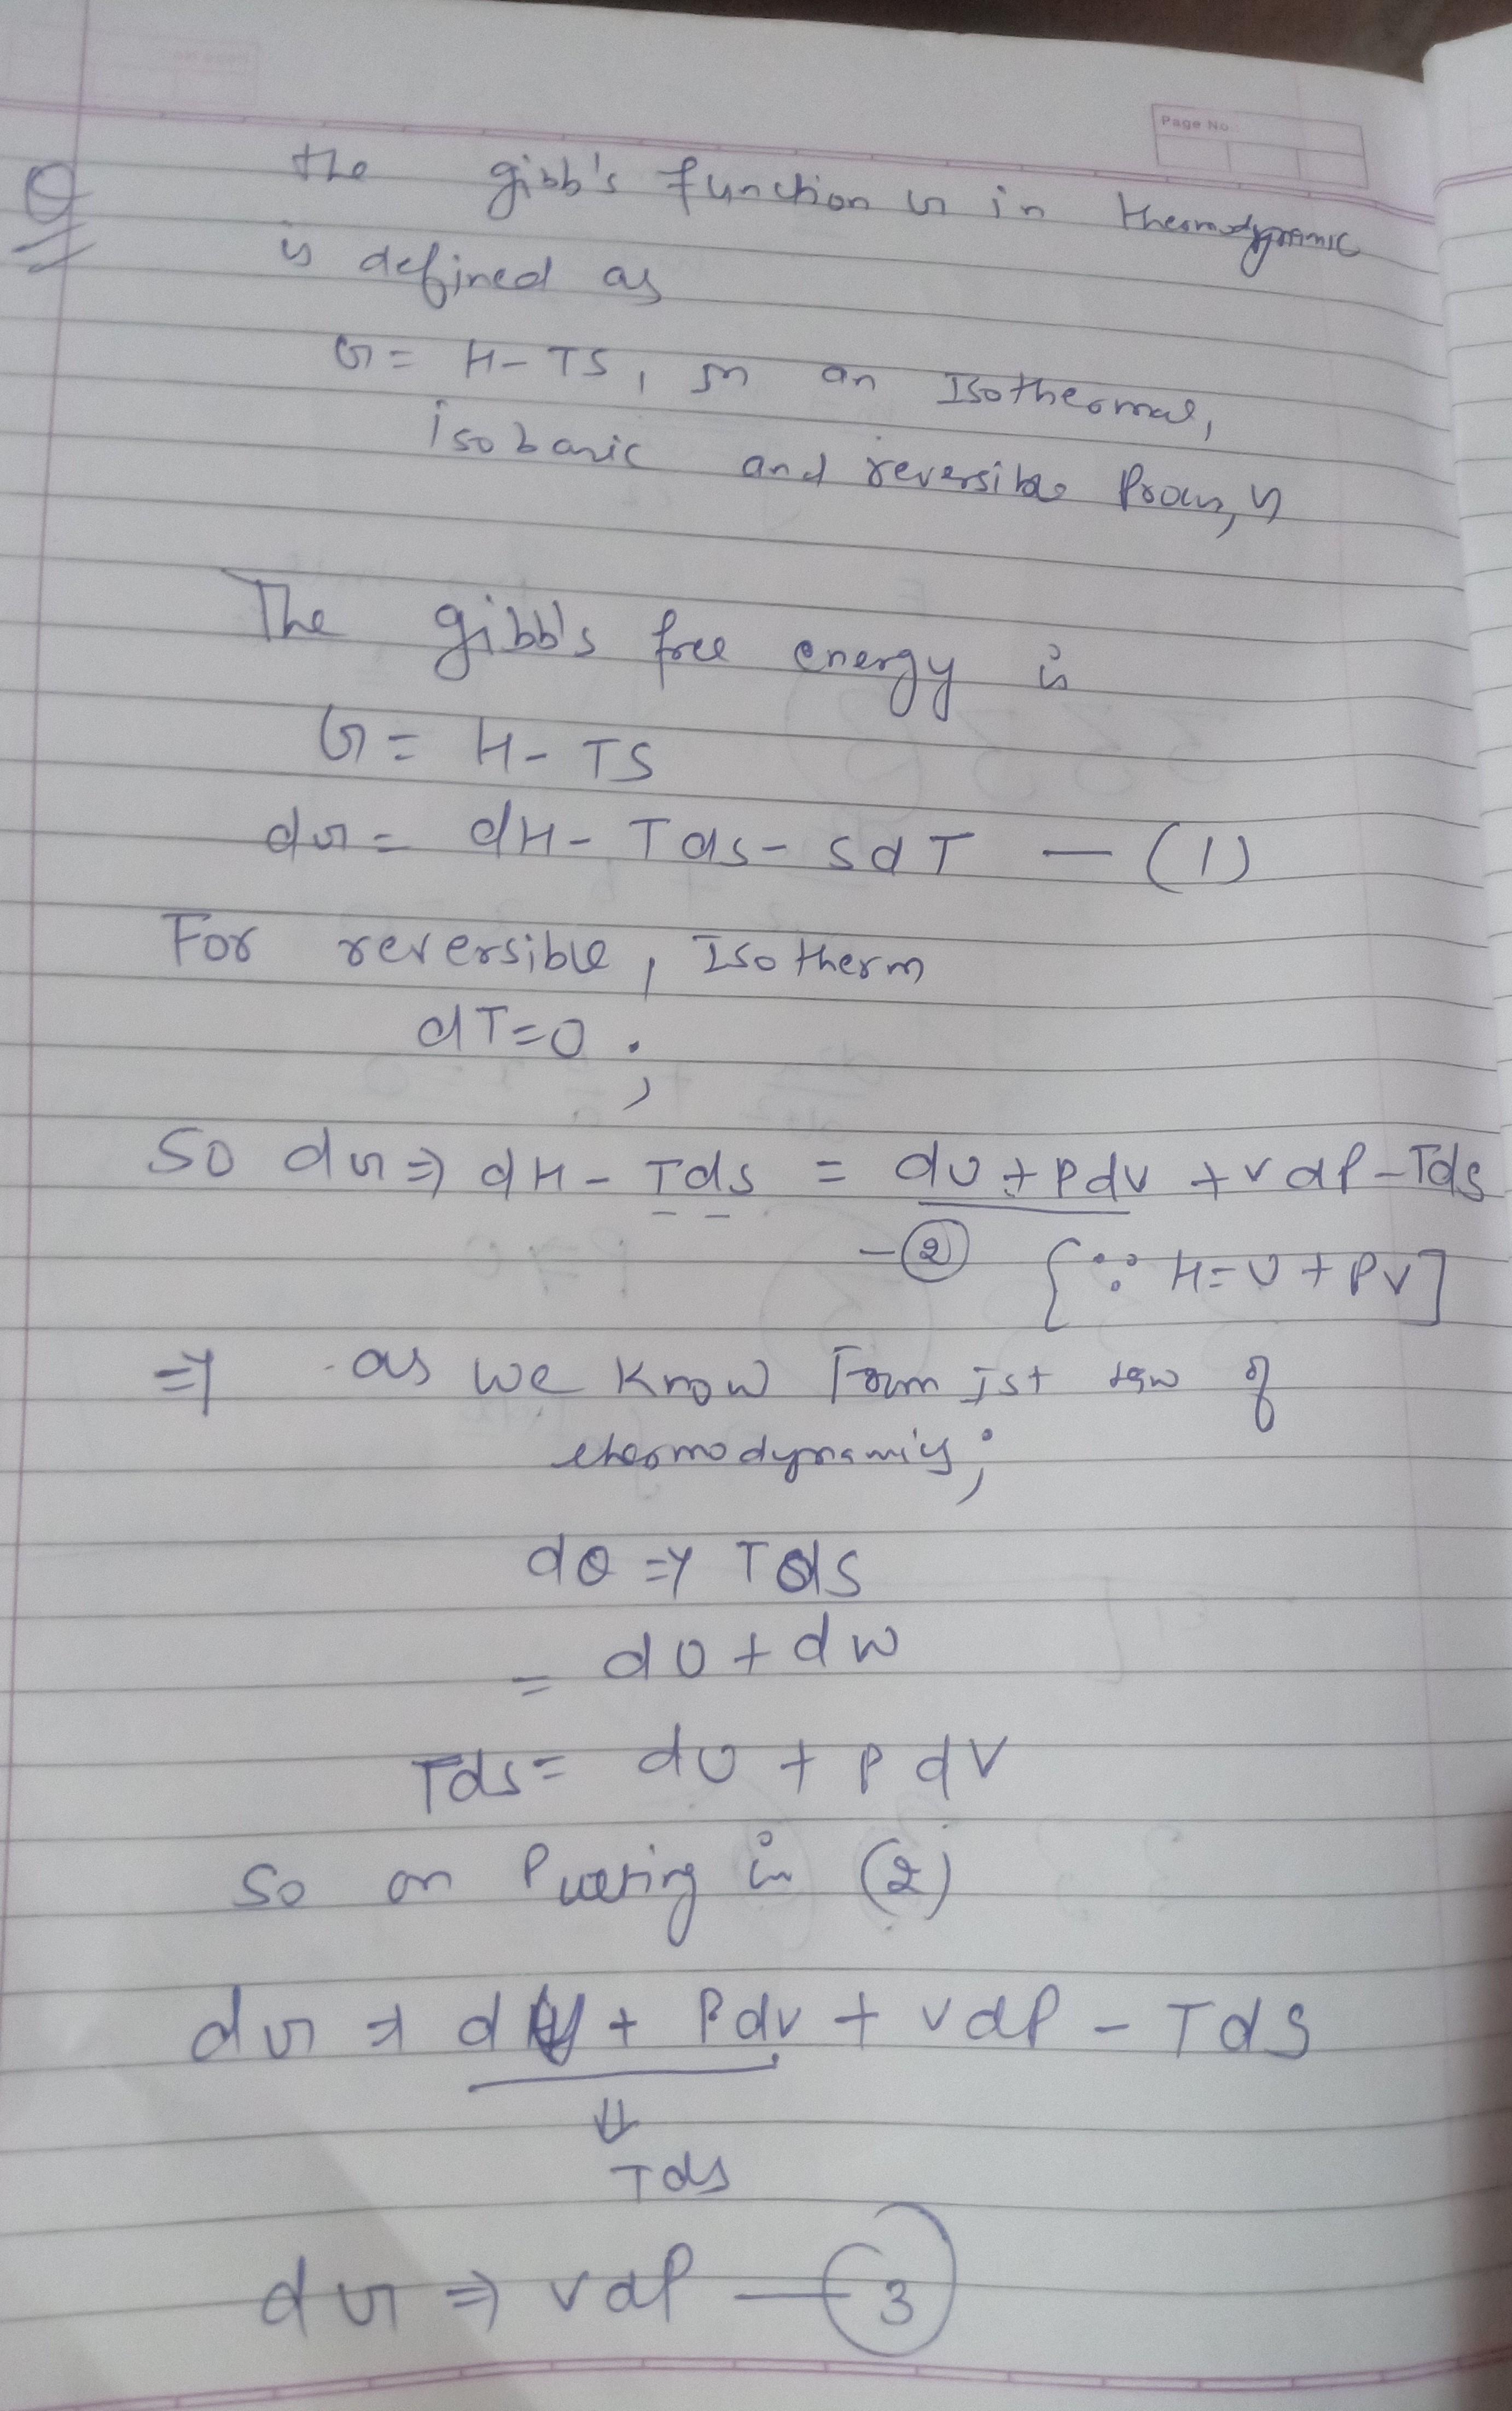 Page No.:
Q the gibb's function G in thermodynamic
is defined as
G = H - TS, In an Isothermal,
isobaric and reversible Process, G
The gibb's free energy is
G = H - TS
dG = dH - Tds - SdT — (1)
For reversible, Isotherm
dT=0 ;
So dG ⇒ dH - Tds = dU + Pdv + vdP - Tds
— ② {∵ H = U + PV]
⇒ as we know From Ist law of
thermodynamics;
dQ ⇒ TdS
= dU + dw
Tds = dU + P dV
So on Putting in (2)
dG ⇒ dU + Pdv + vdP - Tds
⇓
Tds
dG ⇒ vdP — ③